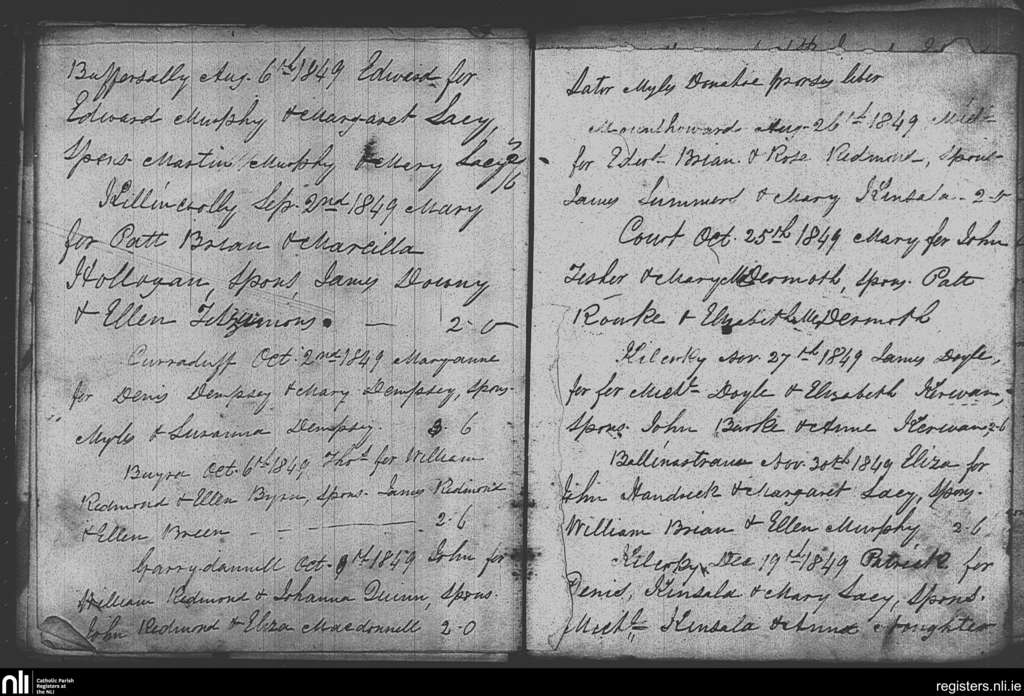 Buffersally Aug. 6th 1849 Edward for
Edward Murphy & Margaret Lacy,
Spons. Martin Murphy & Mary Lacy 2/6
Killincooly Sep. 2nd 1849 Mary
for Patt Brian & Marcilla
Hollogan, Spons. James Downy
& Ellen Fitzsimons. — 2-0
Curraduff Oct. 2nd 1849 Maryanne
for Denis Dempsey & Mary Dempsey, Spons.
Myles & Susanna Dempsey. 2-6
Oct. 6th 1849 Thos. for William
Redmond & Ellen Byrn, Spons. James Redmond
& Ellen Breen — — 2-6
Garrydannell Oct. 9th 1849 John for
William Redmond & Johanna Quinn, Spons.
John Redmond & Eliza Macdonnell 2-0
Sator Myles Donahoe prorsus liber
Mounthoward Aug. 26th 1849 Michl.
for Edwd. Brian & Rose Redmond, Spons.
James Summers & Mary Kinsala - 2-0
Court Oct. 25th 1849 Mary for John
Fisher & Mary McDermoth, Spons. Patt
Rourke & Elizabeth McDermoth
Kilcorky Nov. 27th 1849 James Doyle,
for for Michl. Doyle & Elizabeth Kerwan,
Spons. John Burke & Anne Kerwan, 2-6
Ballinastraw Nov. 30th 1849 Eliza for
John Handrick & Margaret Lacy, Spons.
William Brian & Ellen Murphy 2-6
Kilcorky Dec 19th 1849 Patrick for
Denis, Kinsala & Mary Lacy, Spons.
Michl. Kinsala & Anne Naughter
nli Catholic Parish
Registers at
the NLI
registers.nli.ie